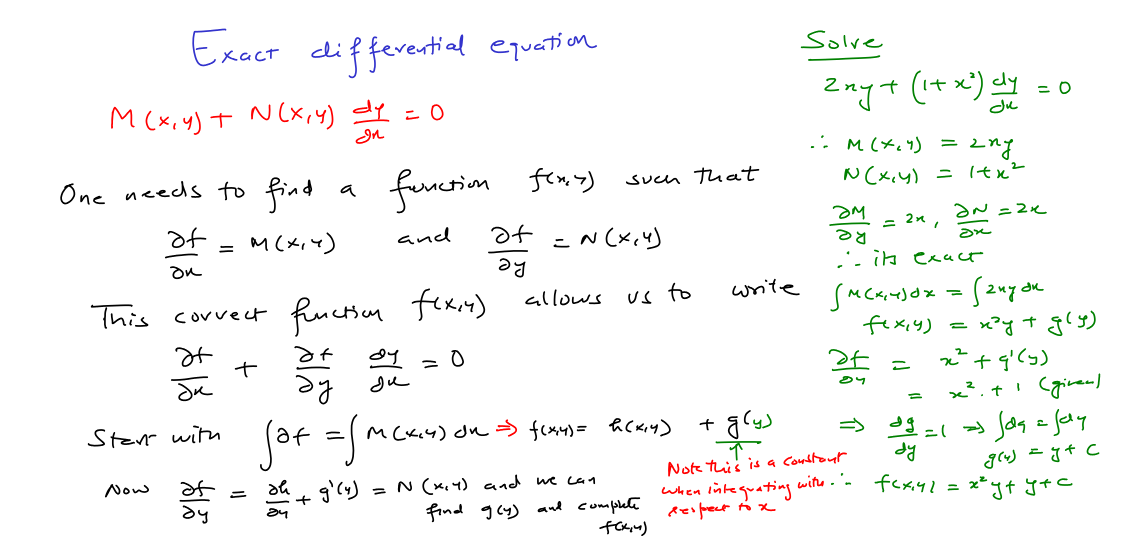 Exact differential equation
M(x,y) + N(x,y) dy/dx = 0
One needs to find a function f(x,y) such that
∂f/∂x = M(x,y) and ∂f/∂y = N(x,y)
This correct function f(x,y) allows us to write
∂f/∂x + ∂f/∂y dy/dx = 0
Start with ∫∂f = ∫M(x,y) dx ⇒ f(x,y) = h(x,y) + g(y)
↑
Note this is a constant
when integrating with
respect to x
Now ∂f/∂y = ∂h/∂y + g'(y) = N(x,y) and we can
find g(y) and complete
f(x,y)
Solve
2xy + (1+x²) dy/dx = 0
∴ M(x,y) = 2xy
N(x,y) = 1+x²
∂M/∂y = 2x, ∂N/∂x = 2x
∴ its exact
∫M(x,y)dx = ∫2xy dx
f(x,y) = x²y + g(y)
∂f/∂y = x² + g'(y)
= x² + 1 (given)
⇒ dg/dy = 1 ⇒ ∫dg = ∫dy
g(y) = y + c
∴ f(x,y) = x²y + y + c